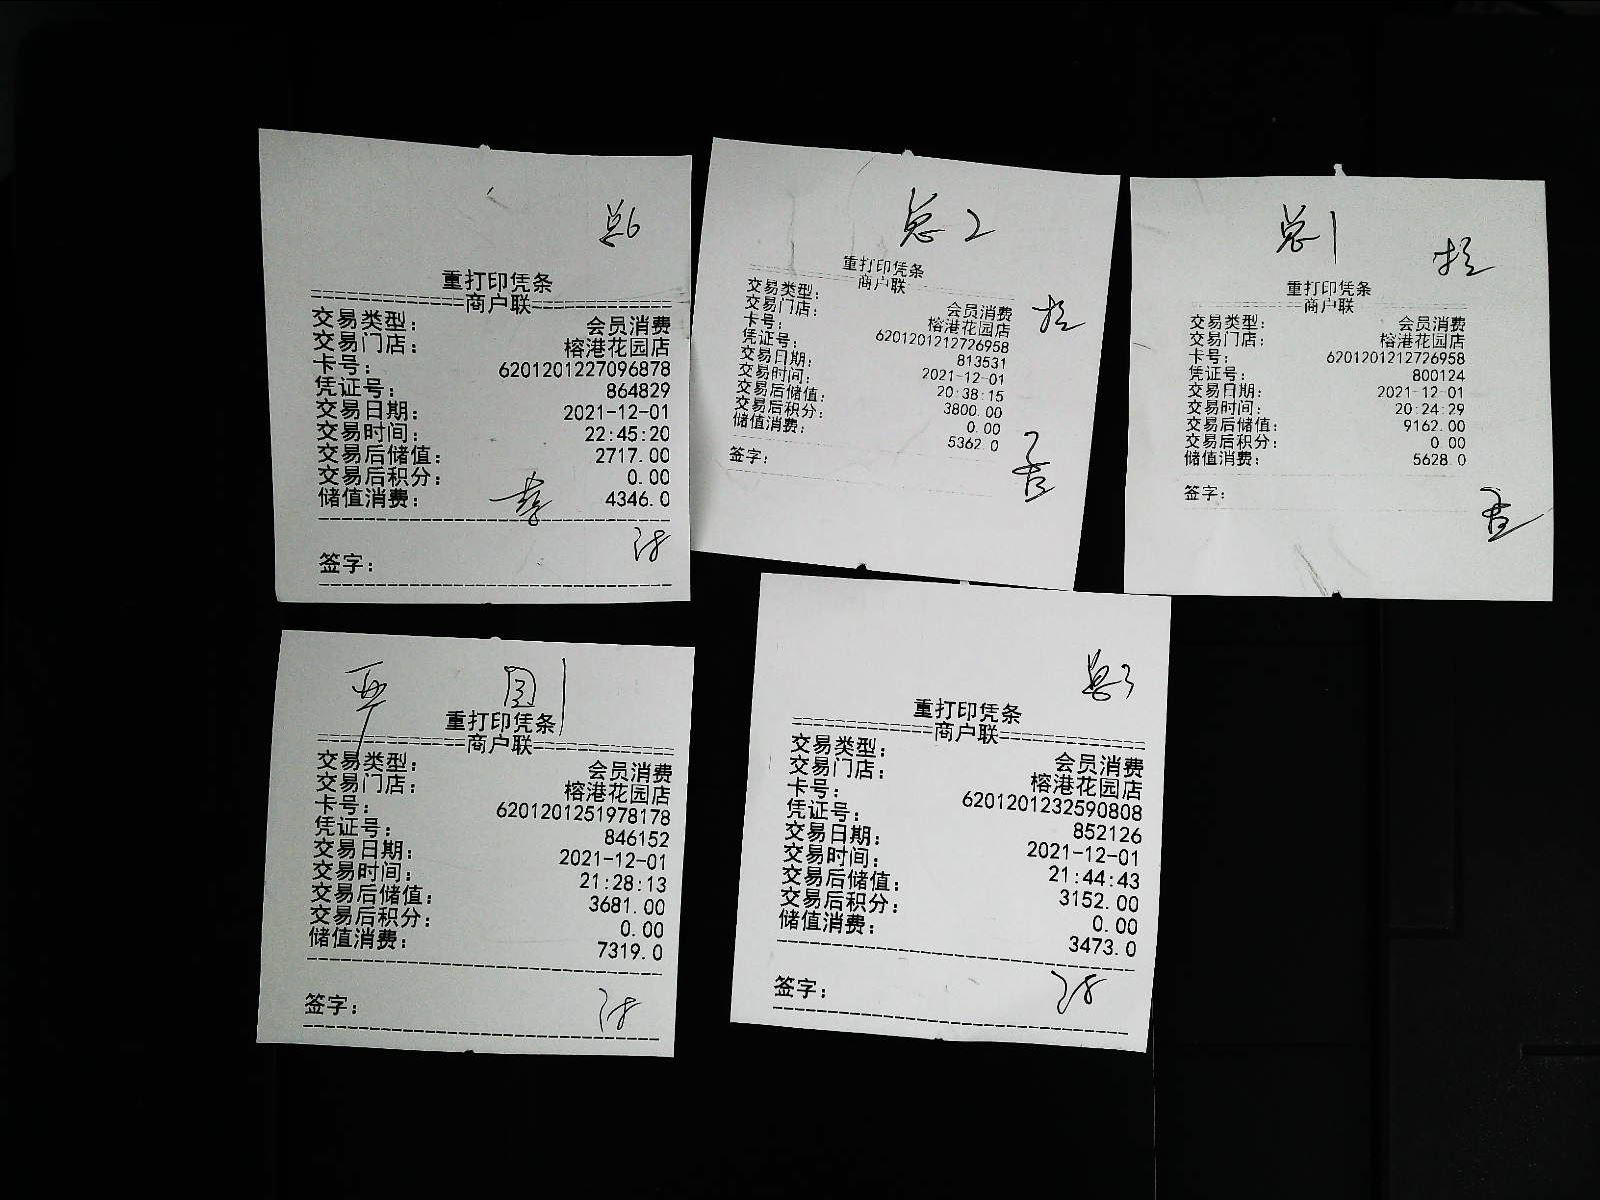 总6
重打印凭条
商户联
交易类型： 会员消费
交易门店： 榕港花园店
卡号： 6201201227096878
凭证号： 864829
交易日期： 2021-12-01
交易时间： 22:45:20
交易后储值： 2717.00
交易后积分： 0.00
储值消费： 4346.0
签字：
总2
重打印凭条
商户联
交易类型： 会员消费
交易门店： 榕港花园店
卡号： 6201201212726958
凭证号： 813531
交易日期： 2021-12-01
交易时间： 20:38:15
交易后储值： 3800.00
交易后积分： 0.00
储值消费： 5362.0
签字：
总1
重打印凭条
商户联
交易类型： 会员消费
交易门店： 榕港花园店
卡号： 6201201212726958
凭证号： 800124
交易日期： 2021-12-01
交易时间： 20:24:29
交易后储值： 9162.00
交易后积分： 0.00
储值消费： 5628.0
签字：
重打印凭条
商户联
交易类型： 会员消费
交易门店： 榕港花园店
卡号： 6201201251978178
凭证号： 846152
交易日期： 2021-12-01
交易时间： 21:28:13
交易后储值： 3681.00
交易后积分： 0.00
储值消费： 7319.0
签字：
总3
重打印凭条
商户联
交易类型： 会员消费
交易门店： 榕港花园店
卡号： 6201201232590808
凭证号： 852126
交易日期： 2021-12-01
交易时间： 21:44:43
交易后储值： 3152.00
交易后积分： 0.00
储值消费： 3473.0
签字：